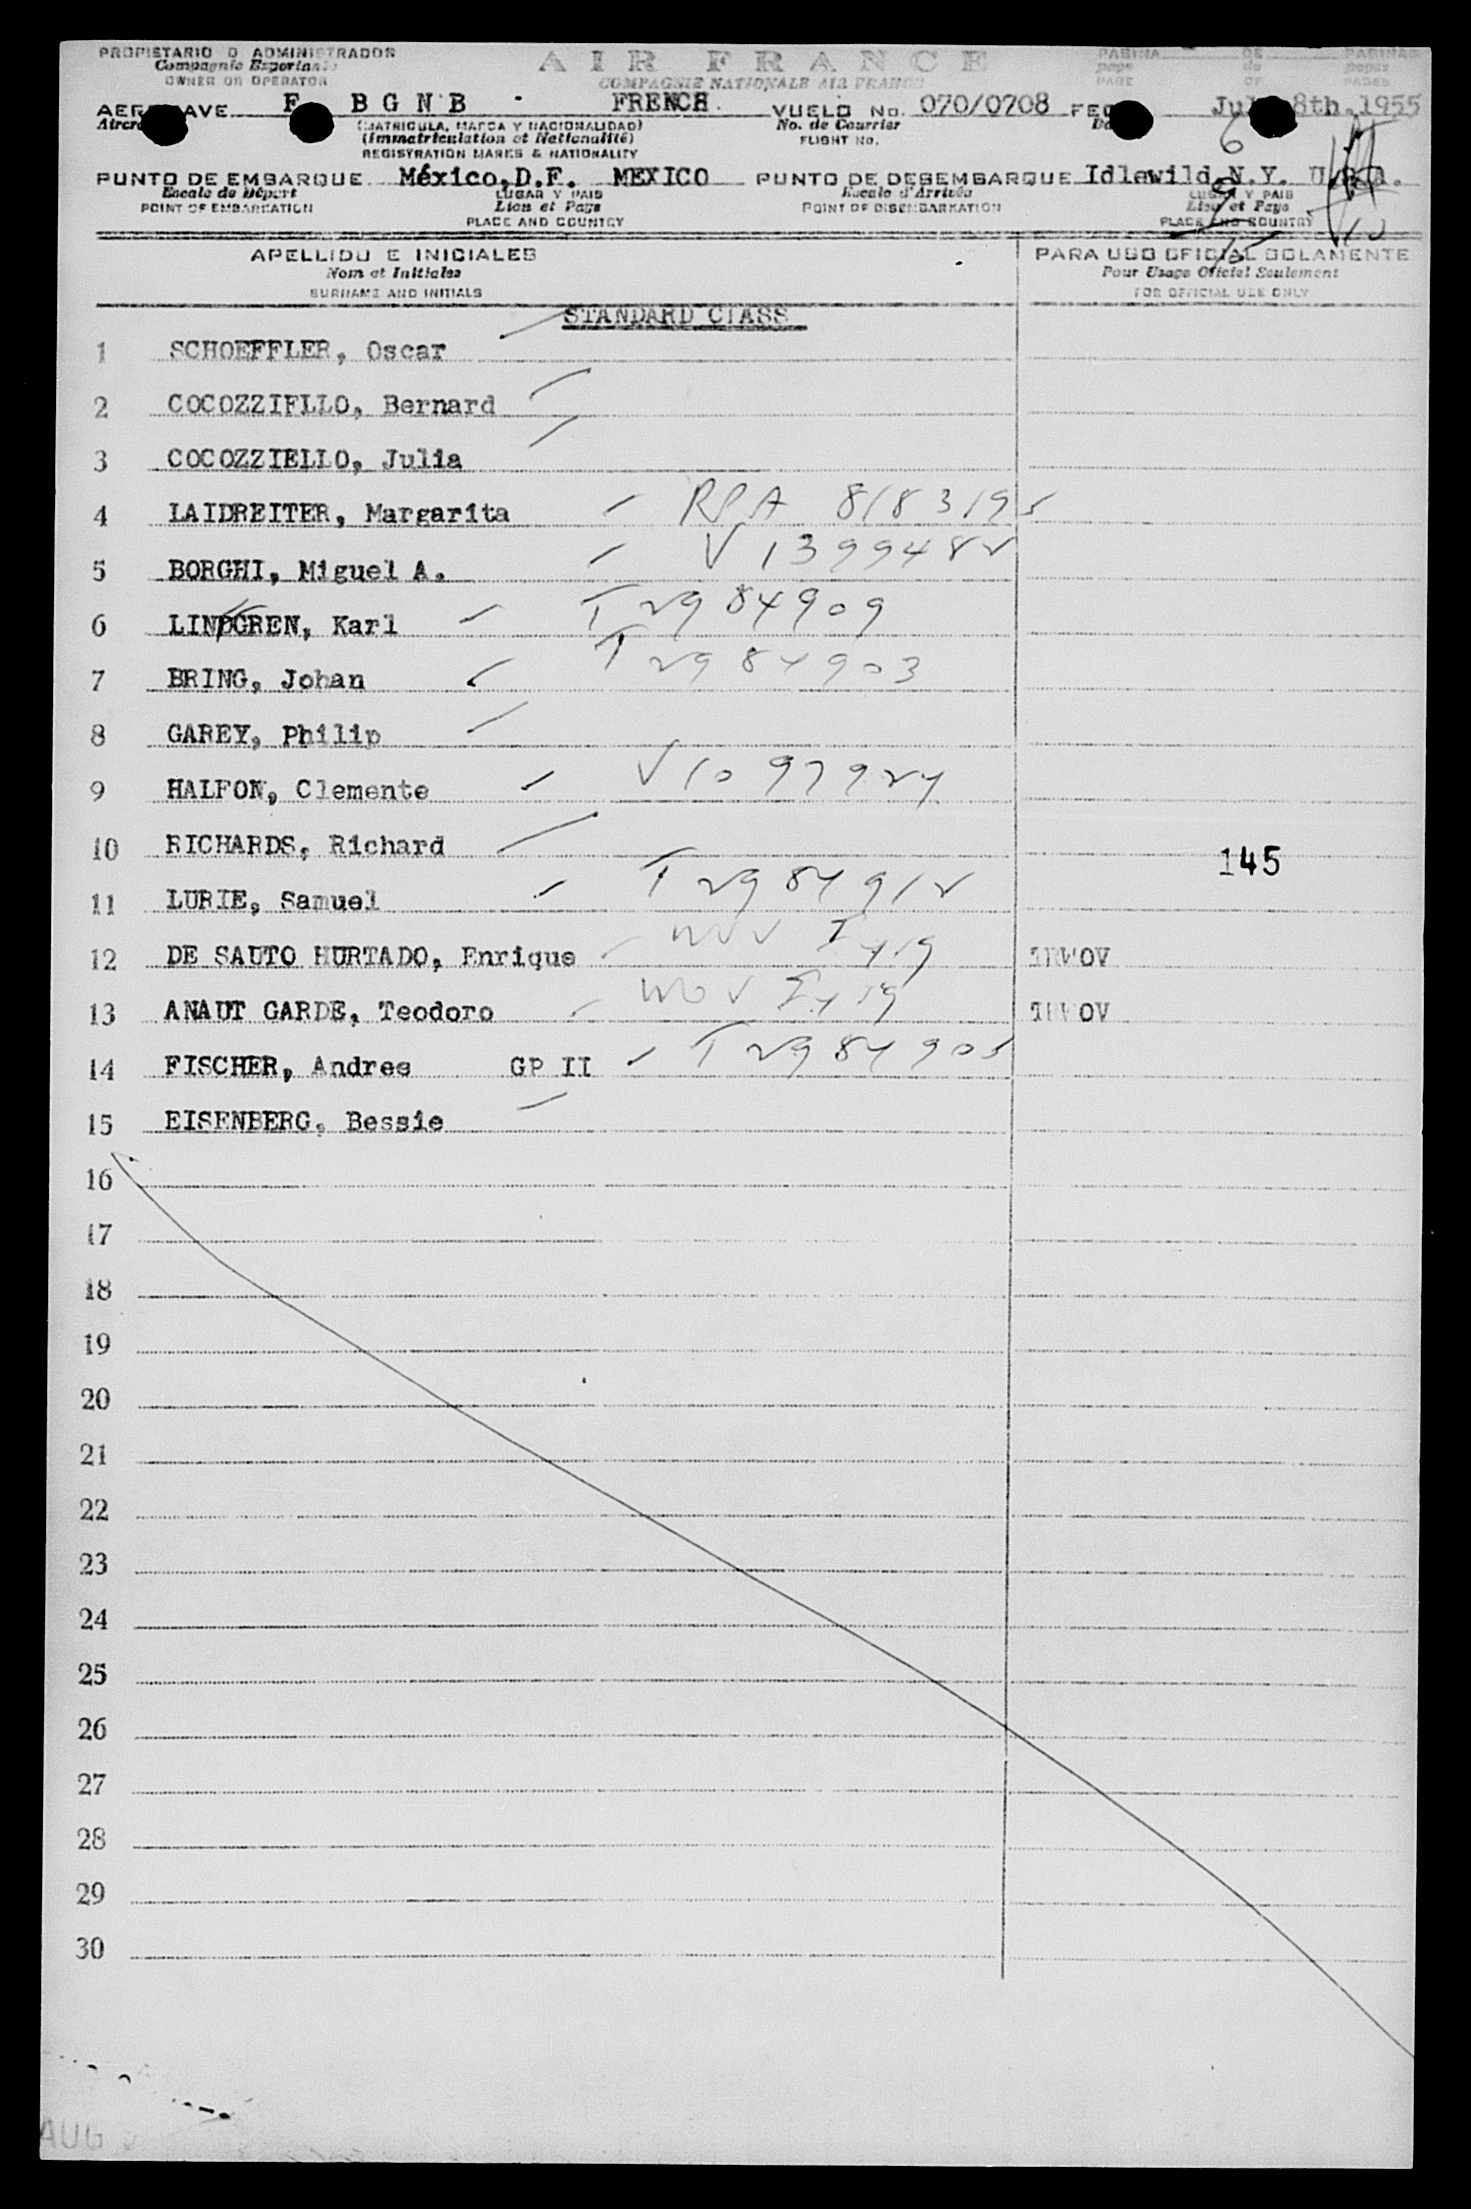 PROPIETARIO O ADMINISTRADOR
Compagnie
OWNER OR OPERATOR
AIR FRANCE
COMPAGNIE NATIONALE AIR FRANCE
PAGINA DE PAGINAS
page de pages
PAGE OF PAGES
F BGNB FRENCH. VUELO No. 070/0708 8th, 1955
(MATRICULA, MARCA Y NACIONALIDAD)
(Immatriculation et Nationalité)
REGISTRATION MARKS & NATIONALITY
No. de Courrier
FLIGHT No.
6
PUNTO DE EMBARQUE México, D.F. MEXICO PUNTO DE DESEMBARQUE Idlewild, N.Y. U.S.A.
Escale de Départ
POINT OF EMBARCATION
LUGAR Y PAIS
Lieu et Pays
PLACE AND COUNTRY
Escale d'Arrivée
POINT OF DISEMBARKATION
LUGAR Y PAIS
Lieu et Pays
PLACE AND COUNTRY
APELLIDO E INICIALES
Nom et Initiales
SURNAME AND INITIALS
PARA USO OFICIAL SOLAMENTE
Pour Usage Officiel Seulement
FOR OFFICIAL USE ONLY
STANDARD CLASS
1 SCHOEFFLER, Oscar
2 COCOZZIELLO, Bernard
3 COCOZZIELLO, Julia
4 LAIDREITER, Margarita RPA 8183195
5 BORGHI, Miguel A. V1399482
6 LINDGREN, Karl T2984909
7 BRING, Johan T2984903
8 GAREY, Philip
9 HALFON, Clemente V1097924
10 RICHARDS, Richard
145
11 LURIE, Samuel T2984912
12 DE SAUTO HURTADO, Enrique TRWOV
13 ANAUT GARDE, Teodoro TRWOV
14 FISCHER, Andres GP II T2984905
15 EISENBERG, Bessie
16
17
18
19
20
21
22
23
24
25
26
27
28
29
30
AUG